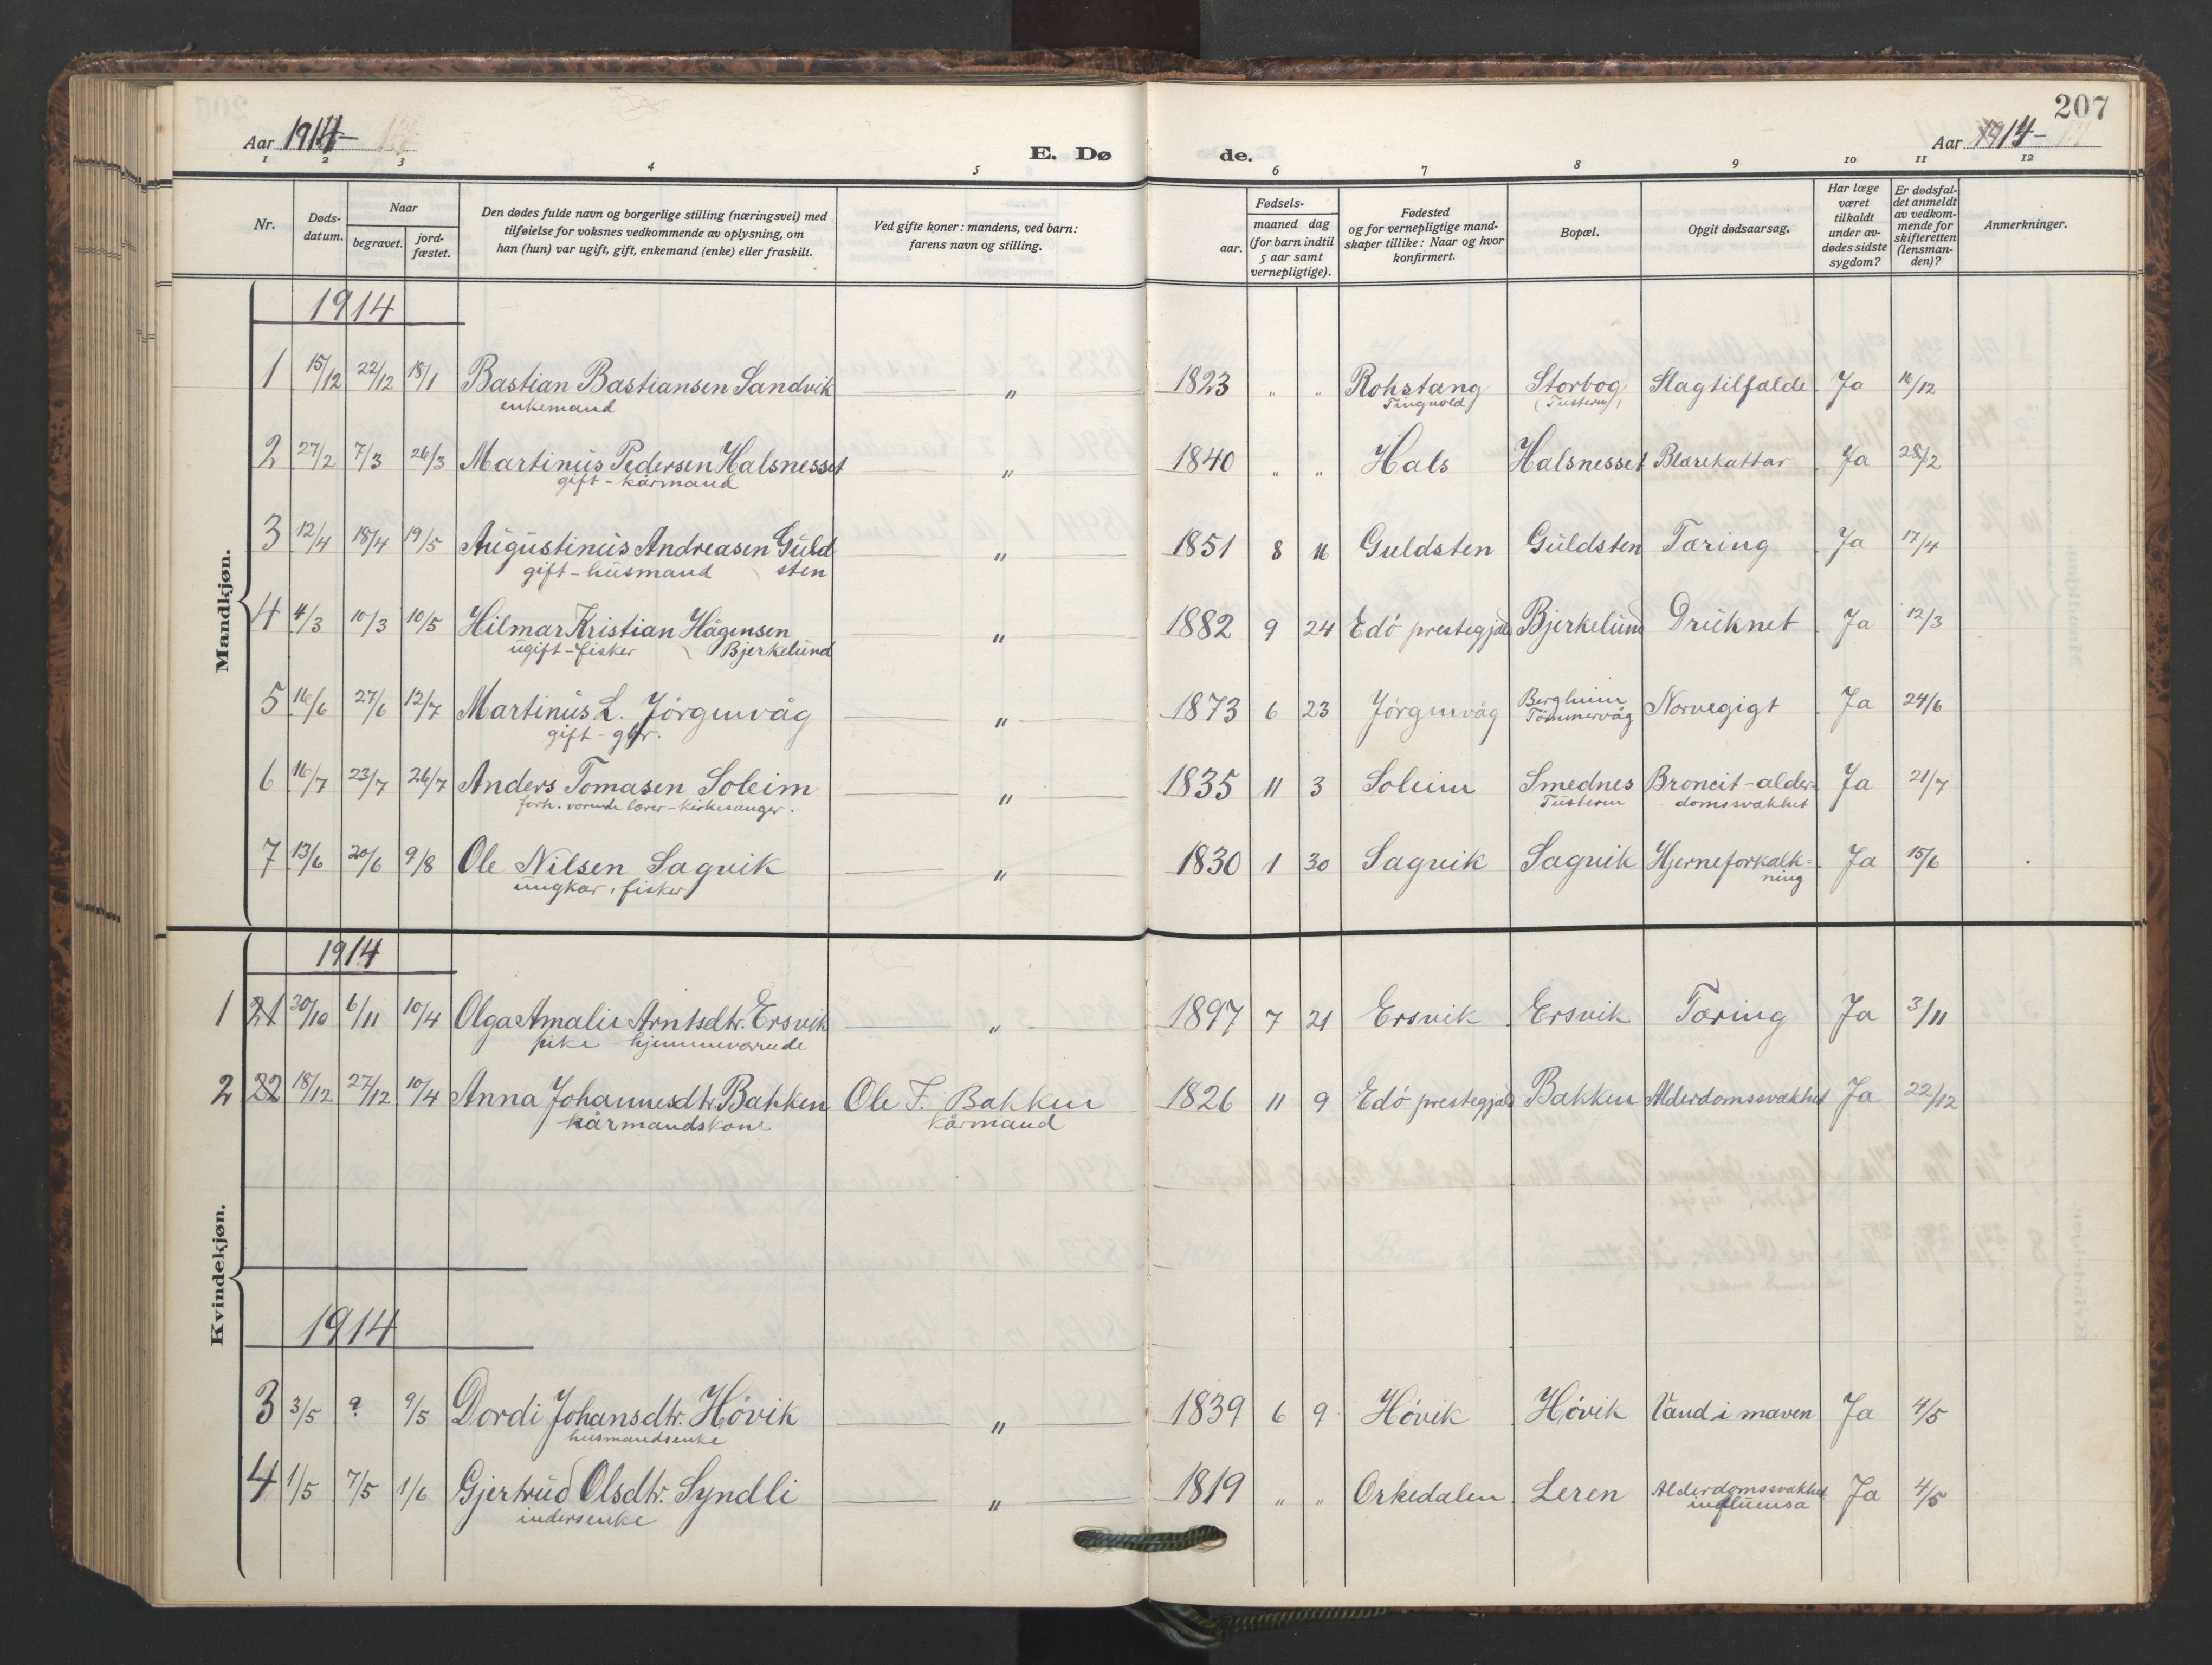 207
Aar 1914-
E. Dø de.
Aar 1914-
1 2 3 4 5 6 7 8 9 10 11 12
Nr.
Døds-
datum.
Naar
begravet.
jord-
fæstet.
Den dødes fulde navn og borgerlige stilling (næringsvei) med
tilføielse for voksnes vedkommende av oplysning, om
han (hun) var ugift, gift, enkemand (enke) eller fraskilt.
Ved gifte koner: mandens, ved barn:
farens navn og stilling.
Fødsels-
aar.
maaned dag
(for barn indtil
5 aar samt
vernepligtige).
Fødested
og for vernepligtige mand-
skaper tillike: Naar og hvor
konfirmert.
Bopæl.
Opgit dødsaarsag.
Har læge
været
tilkaldt
under av-
dødes sidste
sygdom?
Er dødsfal-
det anmeldt
av vedkom-
mende for
skifteretten
(lensman-
den)?
Anmerkninger.
Mandkjøn.
1914
1 15/12 22/12 18/1 Bastian Bastiansen Sandvik " 1823 " " Rohstang Storbog Slagtilfælde Ja 16/12
enkemand Tingvold (Tusteren)
2 27/2 7/3 26/3 Martinus Pedersen Halsnesset " 1840 " " Hals Halsnesset Blærekattar Ja 28/2
gift - kårmand
3 12/4 18/4 19/5 Augustinus Andreasen Guld " 1851 8 16 Guldsten Guldsten Tæring Ja 17/4
gift - husmand sten
4 4/3 10/3 10/5 Hilmar Kristian Hågensen " 1882 9 24 Edö prestegjæld Bjerkelund Druknet Ja 12/3
ugift - fisker Bjerkelund
5 16/6 27/6 12/7 Martinus L. Jörgenvåg " 1873 6 23 Jörgenvåg Bergheim Norvegigt Ja 24/6
gift - gbr. Tömmervåg
6 16/7 23/7 26/7 Anders Tomasen Soleim " 1835 11 3 Soleim Smednes Broncit - alder- Ja 21/7
forh. værende lærer - kirkesanger. Tusteren domssvakhet
7 13/6 20/6 9/8 Ole Nilsen Sagvik " 1830 1 30 Sagvik Sagvik Hjerneforkalk- Ja 15/6
ungkar, fisker ning
Kvindekjøn.
1914
1 21 30/10 6/11 10/4 Olga Amalie Arntsdtr. Ersvik " 1897 7 21 Ersvik Ersvik Tæring Ja 3/11
pike hjemmeværende
2 22 18/12 27/12 10/4 Anna Johannesdtr. Bakken Ole F. Bakken 1826 11 9 Edö prestegjæld Bakken Alderdomssvakhet Ja 22/12
kårmandskone kårmand
1914
3 3/5 ? 9/5 Dordi Johansdtr. Hövik " 1839 6 9 Hövik Hövik Vand i maven Ja 4/5
husmandsenke
4 1/5 7/5 1/6 Gjertrud Olsdtr. Syndli " 1819 " " Orkedalen Leren Alderdomssvakhet Ja 4/5
indersenke influensa